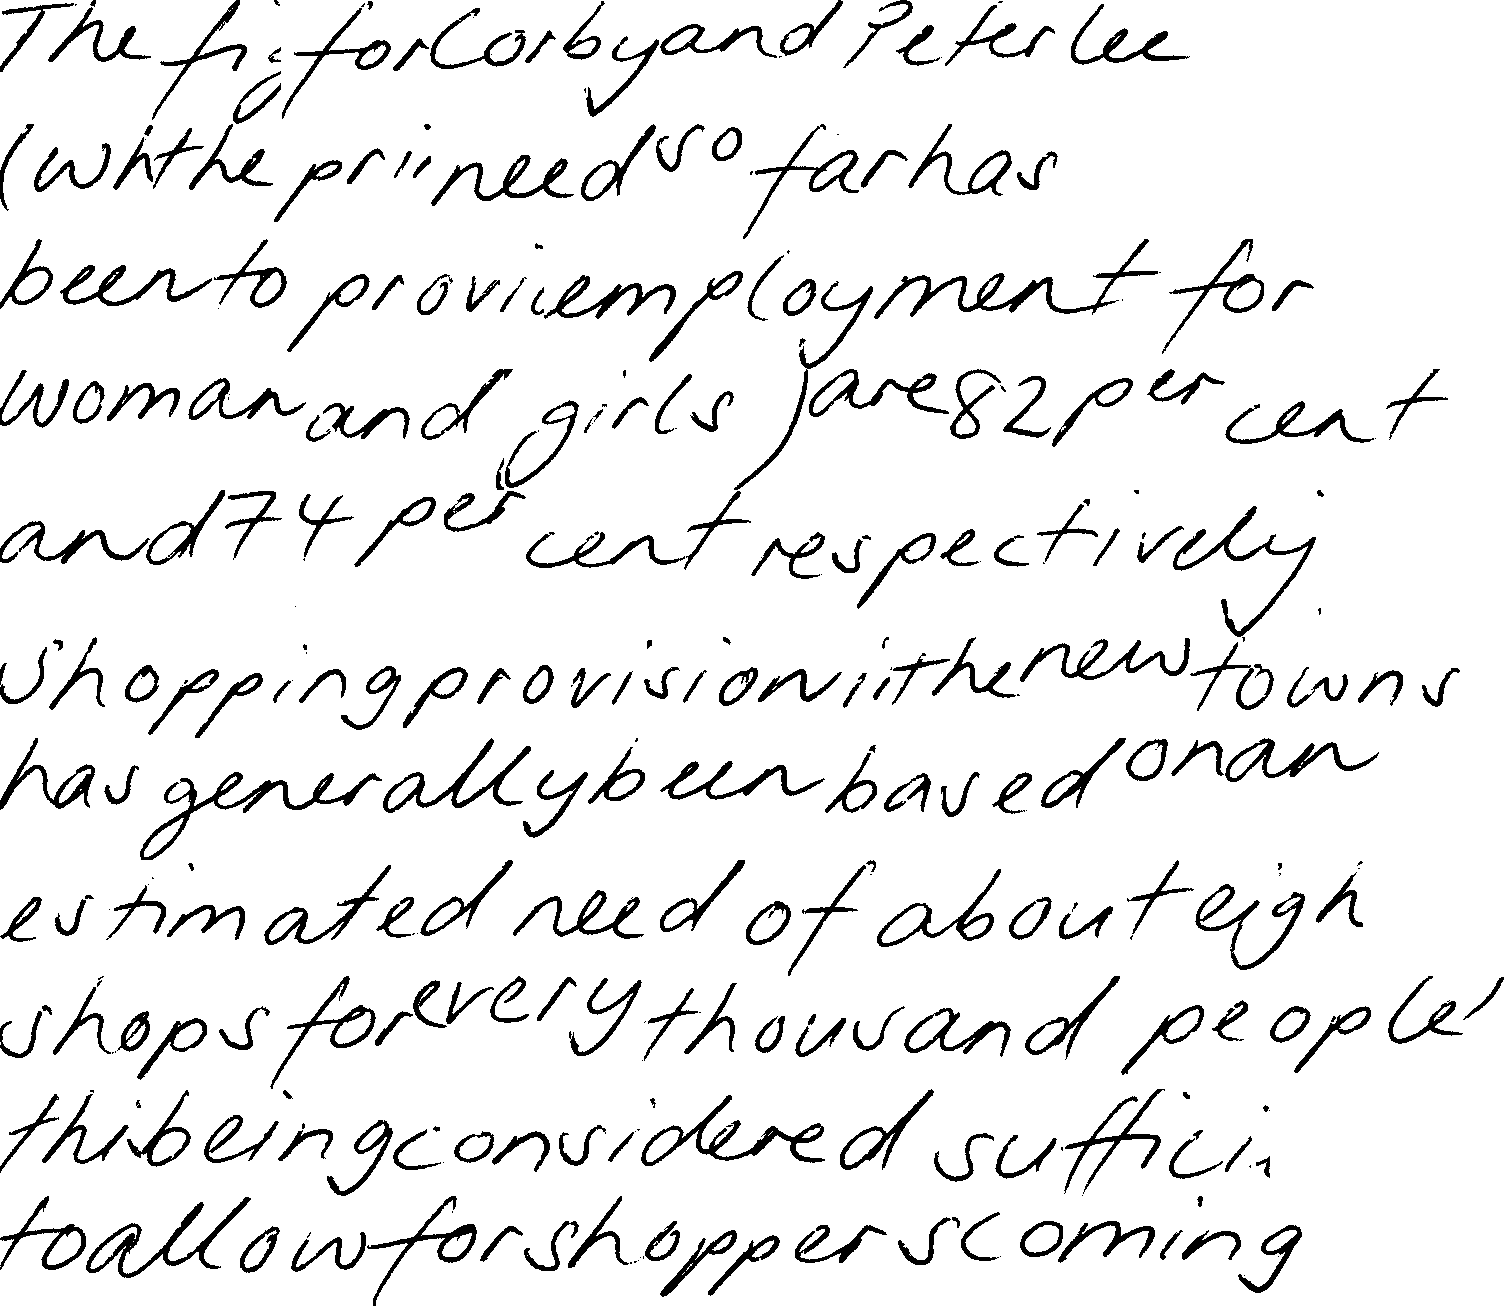 The for Corby and Peterlee
( the need so far has
been to employment for
woman and girls ) are 82 per cent
and 74 per cent respectively
Shopping provision the new towns
has generally been based on an
estimated need of about eigh
shops for every thousand people '
being considered
to allow for shoppers coming